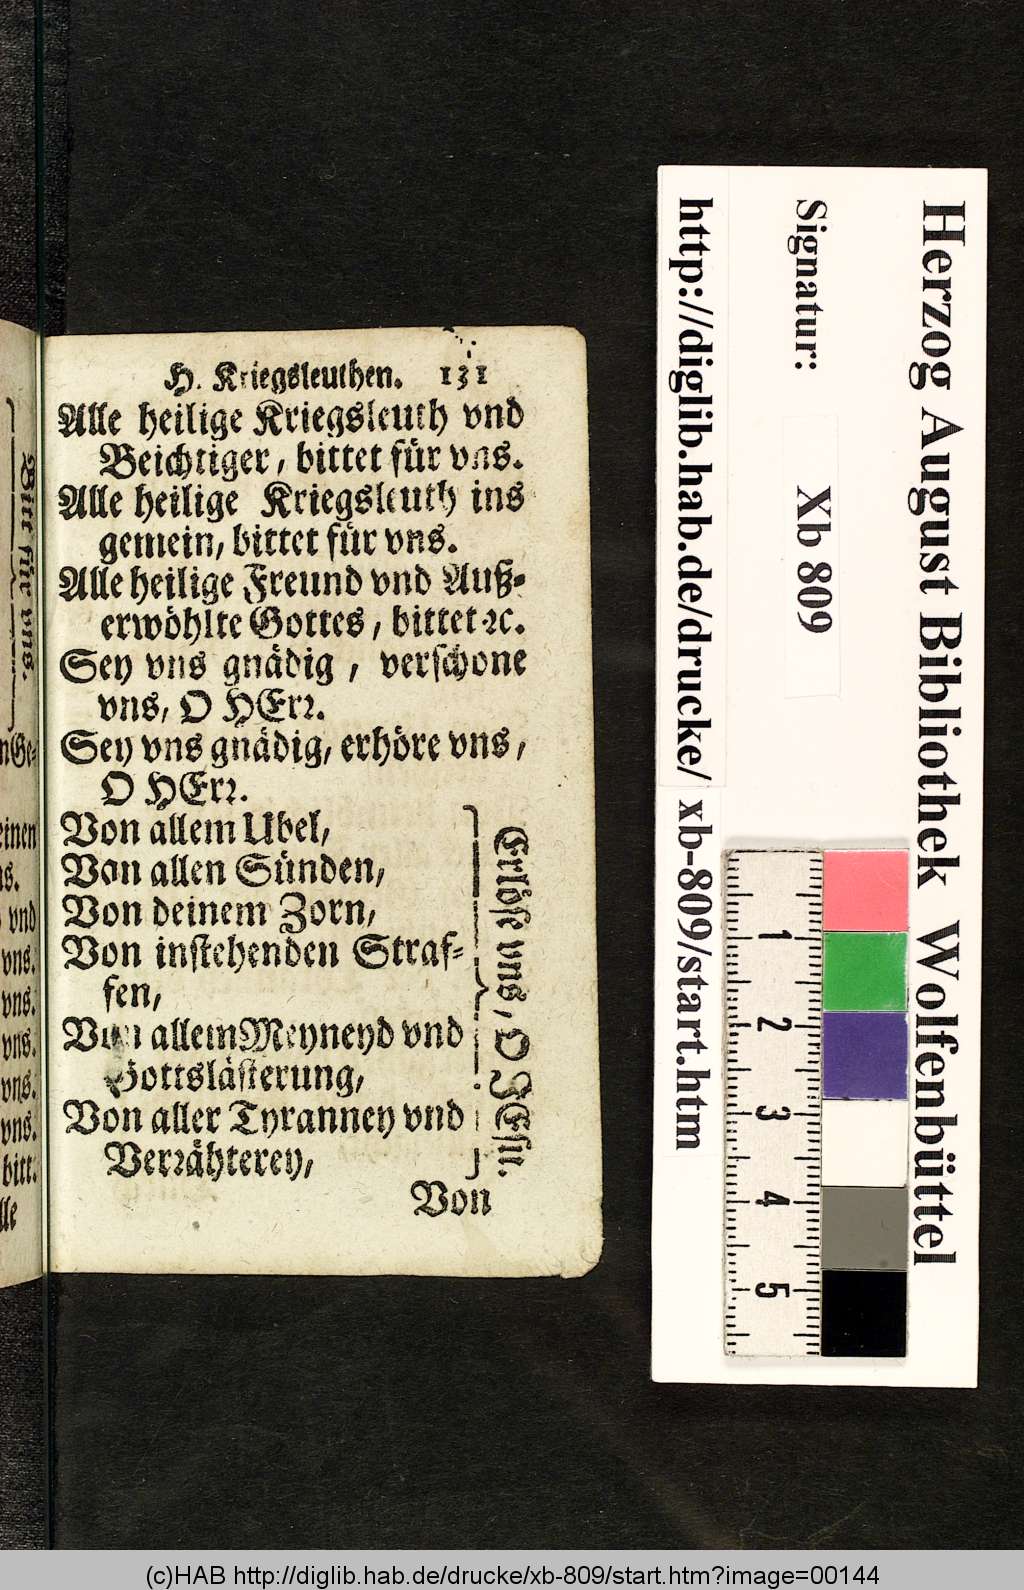 H. Kriegsleuthen. 131
Alle heilige Kriegsleuth vnd
Beichtiger, bittet für vns.
Alle heilige Kriegsleuth ins
gemein, bittet für vns.
Alle heilige Freund vnd Auß⸗
erwöhlte Gottes, bittet ꝛc.
Sey vns gnädig, verschone
vns, O HErꝛ.
Sey vns gnädig, erhöre vns,
O HErꝛ.
Von allem Ubel,
Von allen Sünden,
Von deinem Zorn,
Von instehenden Straf⸗
fen,
Von allem Meyneyd vnd
Gottslästerung,
Von aller Tyranney vnd
Verꝛähterey,
Erlöse vns, O JEsu.
Von
Bitt für vns.
nGe⸗
einen
vnd
vns.
vns.
vns.
vns.
vns.
bitt.
lle
Herzog August Bibliothek Wolfenbüttel
Signatur: Xb 809
http://diglib.hab.de/drucke/ xb-809/start.htm
1
2
3
4
5
(c)HAB http://diglib.hab.de/drucke/xb-809/start.htm?image=00144